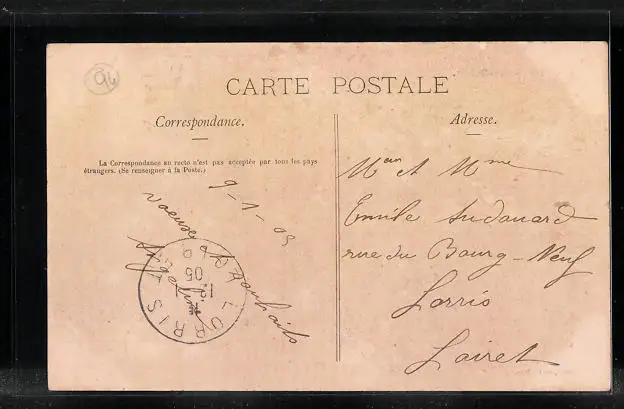 94
CARTE POSTALE
Correspondance.
La Correspondance au recto n'est pas acceptée par tous les pays
étrangers. (Se renseigner à la Poste.)
9-1-05
Souhaits
LORRIS
05
Adresse.
et Mme
Emile Sudouard
rue du Bourg-Neuf
Lorris
Loiret